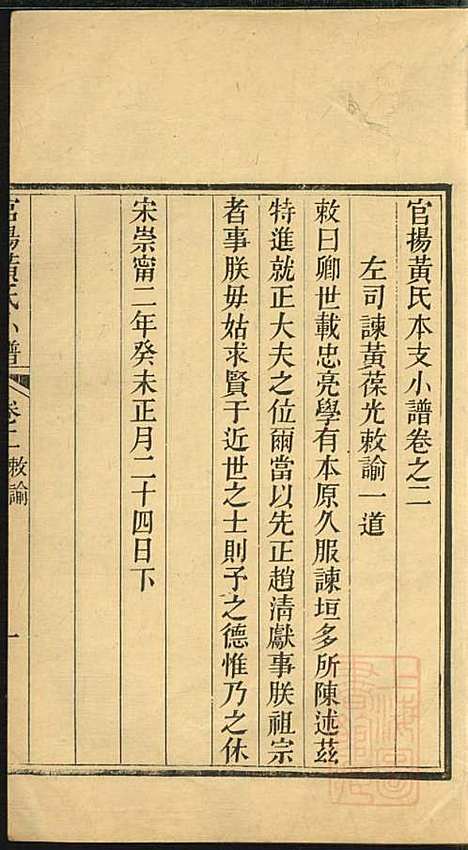 官揚黃氏本支小譜卷之二
左司諫黃葆光敕諭一道
敕曰卿世載忠亮學有本原久服諫垣多所陳述茲
特進就正大夫之位爾當以先正趙清獻事朕祖宗
者事朕毋姑求賢于近世之士則予之德惟乃之休
宋崇甯二年癸未正月二十四日下
官揚黃氏小譜 卷二 敕諭 一